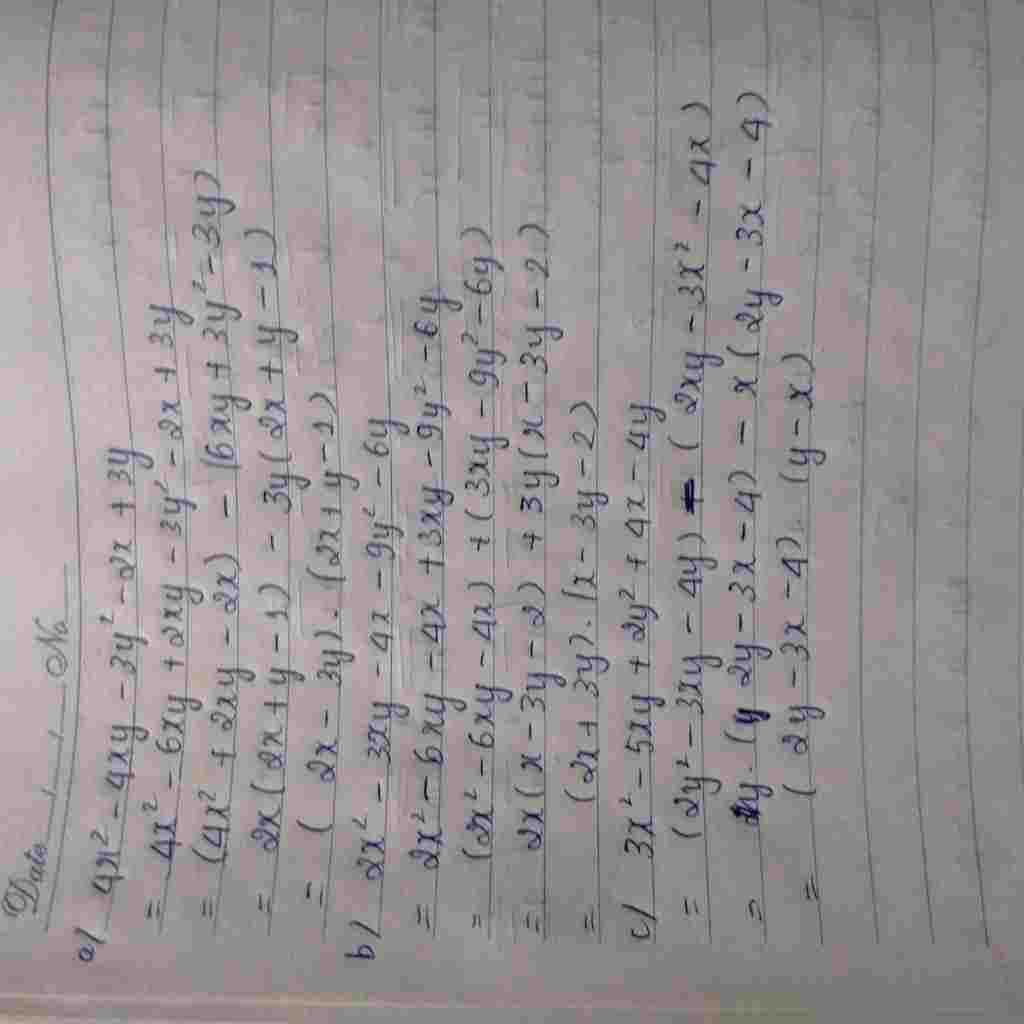 Date / / No
a) 4x² - 4xy - 3y² - 2x + 3y
= 4x² - 6xy + 2xy - 3y² - 2x + 3y
= (4x² + 2xy - 2x) - (6xy + 3y² - 3y)
= 2x(2x + y - 1) - 3y(2x + y - 1)
= (2x - 3y).(2x + y - 1)
b) 2x² - 3xy - 4x - 9y² - 6y
= 2x² - 6xy - 4x + 3xy - 9y² - 6y
= (2x² - 6xy - 4x) + (3xy - 9y² - 6y)
= 2x(x - 3y - 2) + 3y(x - 3y - 2)
= (2x + 3y).(x - 3y - 2)
c) 3x² - 5xy + 2y² + 4x - 4y
= (2y² - 3xy - 4y) - (2xy - 3x² - 4x)
= y.(2y - 3x - 4) - x(2y - 3x - 4)
= (2y - 3x - 4).(y - x)